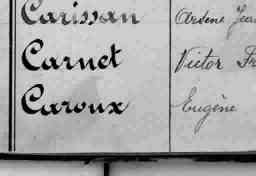 Carissan Arsène Jean
Carnet Victor Fr
Caroux Eugène